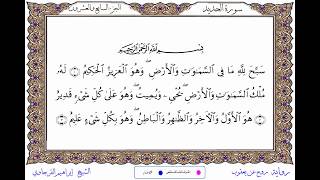 سورة الحديد
الجزء السابع والعشرون
بسم الله الرحمن الرحيم
سَبَّحَ لِلَّهِ مَا فِي السَّمَاوَاتِ وَالْأَرْضِ وَهُوَ الْعَزِيزُ الْحَكِيمُ ۝ لَهُ
مُلْكُ السَّمَاوَاتِ وَالْأَرْضِ يُحْيِي وَيُمِيتُ وَهُوَ عَلَى كُلِّ شَيْءٍ قَدِيرٌ
۝ هُوَ الْأَوَّلُ وَالْآخِرُ وَالظَّاهِرُ وَالْبَاطِنُ وَهُوَ بِكُلِّ شَيْءٍ عَلِيمٌ ۝
رواية روح عن يعقوب
الشيخ إبراهيم الفرجاوي